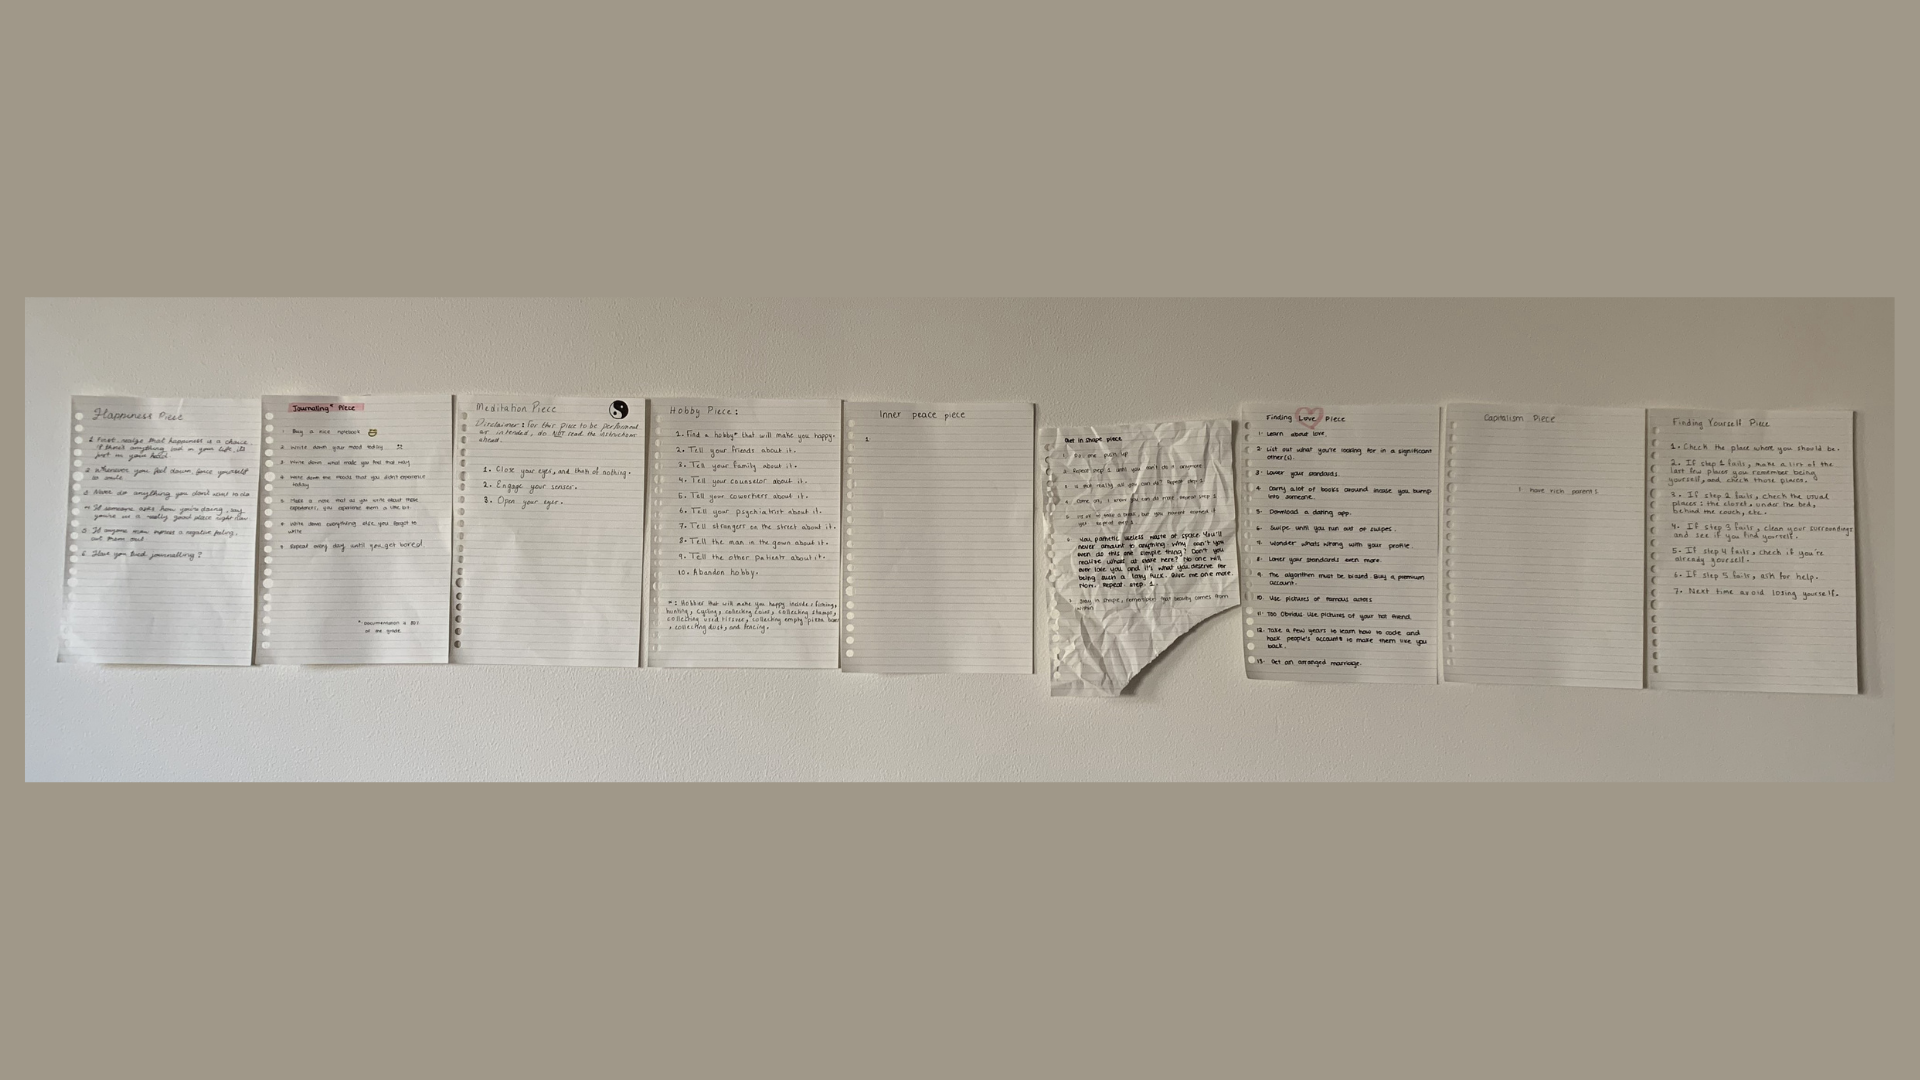 Happiness Piece
1. First, realize that happiness is a choice.
if there's anything bad in your life, it's
just in your head.
2. Whenever you feel down, force yourself
to smile.
3. Never do anything you don't want to do
4. If someone asks how you're doing, say
you're in a really good place right now
5. If anyone ever voices a negative feeling,
cut them out.
6. Have you tried journalling?
Journaling* Piece
1. Buy a nice notebook
2. Write down your mood today
3. Write down what made you feel that way
4. Write down the moods that you didn't experience
today
5. Make a note that as you write about those
experiences, you experience them a little bit.
6. Write down everything else you forgot to
write
7. Repeat every day until you get bored.
*: Documentation is 80%
of the grade
Meditation Piece
Disclaimer: for this piece to be performed
as intended, do NOT read the instructions
ahead.
1. Close your eyes, and think of nothing.
2. Engage your senses.
3. Open your eyes.
Hobby Piece:
1. Find a hobby* that will make you happy.
2. Tell your friends about it.
3. Tell your family about it.
4. Tell your counselor about it.
5. Tell your coworkers about it.
6. Tell your psychiatrist about it.
7. Tell strangers on the street about it.
8. Tell the man in the gown about it.
9. Tell the other patients about it.
10. Abandon hobby.
*: Hobbies that will make you happy include: fishing,
hunting, cycling, collecting coins, collecting stamps,
collecting used tissues, collecting empty pizza boxes
, collecting dust, and fencing.
Inner peace piece
1
Get in shape piece
1. Do one push up
2. Repeat step 1 until you can't do it anymore
3. Is that really all you can do? Repeat step 1
4. Come on, I know you can do more. Repeat step 1
5. take a break, but you haven't earned it
yet. Repeat step 1
6. You pathetic useless waste of space. You'll
never amount to anything. Why can't you
even do this one simple thing? Don't you
realize what's at stake here? No one will
ever love you and it's what you deserve for
being such a lazy fuck. Give me one more.
Now. Repeat step 1.
7. Stay in shape, remember that beauty comes from
within
Finding Love Piece
1. Learn about love.
2. List out what you're looking for in a significant
other(s).
3. Lower your standards.
4. Carry a lot of books around incase you bump
into someone.
5. Download a dating app.
6. Swipe until you run out of swipes.
7. Wonder whats wrong with your profile.
8. Lower your standards even more.
9. The algorithm must be biased. Buy a premium
account.
10. Use pictures of famous actors
11. Too Obvious. Use pictures of your hot friend.
12. Take a few years to learn how to code and
hack people's accounts to make them like you
back.
13. Get an arranged marriage.
Capitalism Piece
1. have rich parents
Finding Yourself Piece
1. Check the place where you should be.
2. If step 1 fails, make a list of the
last few places you remember being
yourself, and check those places.
3. If step 2 fails, check the usual
places: the closet, under the bed,
behind the couch, etc.
4. If step 3 fails, clean your surroundings
and see if you find yourself.
5. If step 4 fails, check if you're
already yourself.
6. If step 5 fails, ask for help.
7. Next time avoid losing yourself.